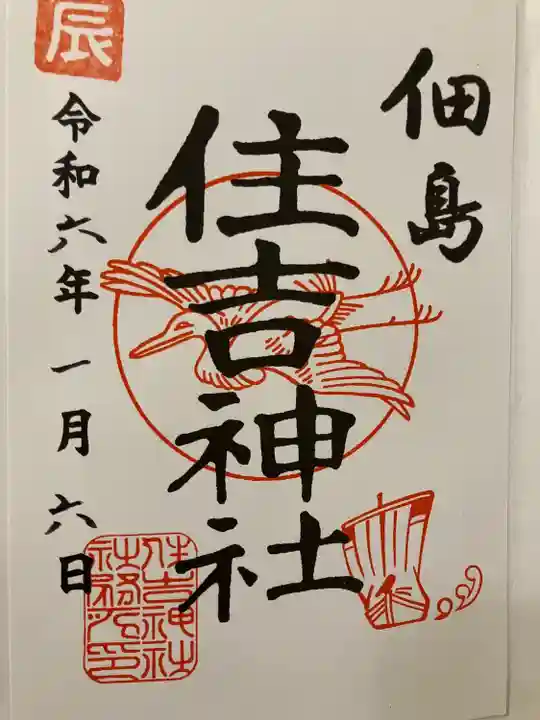 佃島
住吉神社
令和六年一月六日
辰
住吉神社
社務所印